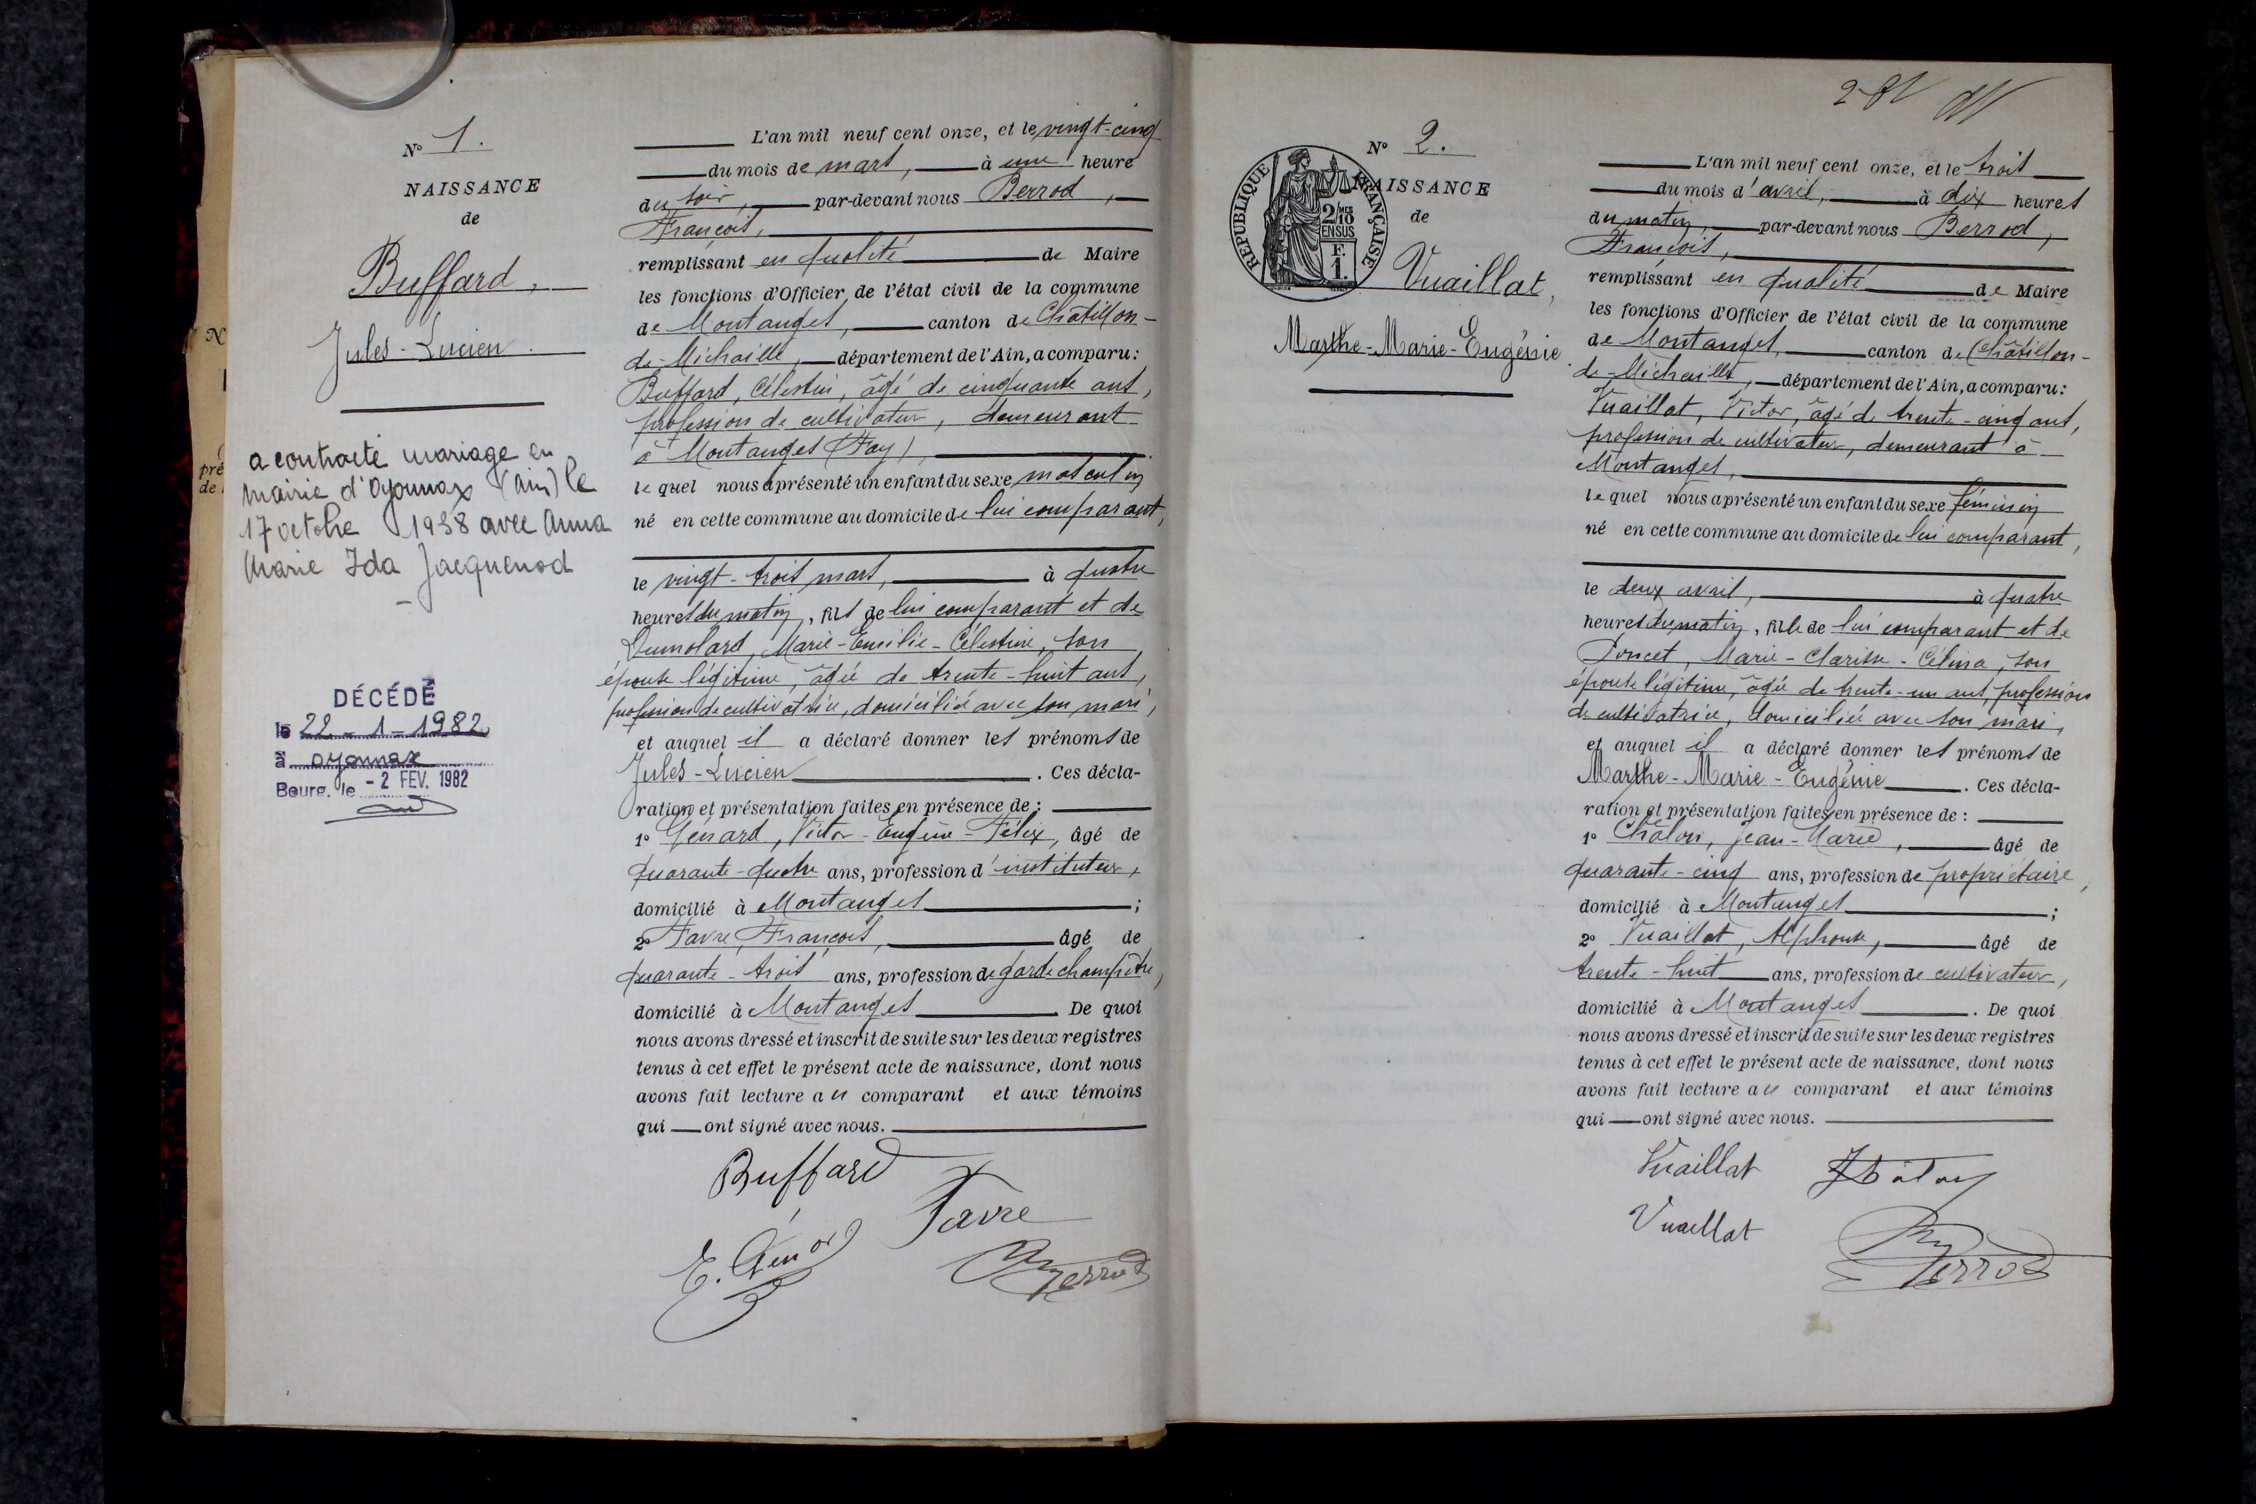 N° 1.
NAISSANCE
de
Buffard,
Jules-Lucien.
a contracté mariage en
mairie d'Oyonnax (Ain) le
17 octobre 1938 avec Anna
Marie Ida Jacquenod
DÉCÉDÉ
le 22-1-1982
à Oyonnax
Bourg, le -2 FEV. 1982
L'an mil neuf cent onze, et le vingt-cinq
du mois de mars, à une heure
du soir, par-devant nous Berrod,
François,
remplissant en qualité de Maire
les fonctions d'Officier de l'état civil de la commune
de Montanges, canton de Châtillon-
de-Michaille, département de l'Ain, a comparu:
Buffard, Célestin, âgé de cinquante ans,
profession de cultivateur, demeurant
à Montanges (Fay),
lequel nous a présenté un enfant du sexe masculin
né en cette commune au domicile de lui comparant,
le vingt-trois mars, à quatre
heures du matin, fils de lui comparant et de
Dumolard, Marie-Emilie-Célestine, son
épouse légitime, âgée de trente-huit ans,
profession de cultivatrice, domiciliée avec son mari,
et auquel il a déclaré donner les prénoms de
Jules-Lucien. Ces décla-
ration et présentation faites en présence de:
1° Génard, Victor-Eugène-Félix, âgé de
quarante-quatre ans, profession d'instituteur,
domicilié à Montanges;
2° Favre, François, âgé de
quarante-trois ans, profession de garde champêtre,
domicilié à Montanges. De quoi
nous avons dressé et inscrit de suite sur les deux registres
tenus à cet effet le présent acte de naissance, dont nous
avons fait lecture au comparant et aux témoins
qui ont signé avec nous.
Buffard
Favre
E. Génard
Berrod
N° 2.
RÉPUBLIQUE FRANÇAISE
2/10 MES
EN SUS
F.
1.
NAISSANCE
de
Vuaillat,
Marthe-Marie-Eugénie.
L'an mil neuf cent onze, et le trois
du mois d'avril, à dix heures
du matin, par-devant nous Berrod,
François,
remplissant en qualité de Maire
les fonctions d'Officier de l'état civil de la commune
de Montanges, canton de Châtillon-
de-Michaille, département de l'Ain, a comparu:
Vuaillat, Victor, âgé de trente-cinq ans,
profession de cultivateur, demeurant à
Montanges,
lequel nous a présenté un enfant du sexe féminin
né en cette commune au domicile de lui comparant,
le deux avril, à quatre
heures du matin, fille de lui comparant et de
Poncet, Marie-Clarisse-Célina, son
épouse légitime, âgée de trente-un ans, profession
de cultivatrice, domiciliée avec son mari,
et auquel il a déclaré donner les prénoms de
Marthe-Marie-Eugénie. Ces décla-
ration et présentation faites en présence de:
1° Châlon, Jean-Marie, âgé de
quarante-cinq ans, profession de propriétaire,
domicilié à Montanges;
2° Vuaillat, Alphonse, âgé de
trente-huit ans, profession de cultivateur,
domicilié à Montanges. De quoi
nous avons dressé et inscrit de suite sur les deux registres
tenus à cet effet le présent acte de naissance, dont nous
avons fait lecture au comparant et aux témoins
qui ont signé avec nous.
Vuaillat
Vuaillat
Berrod